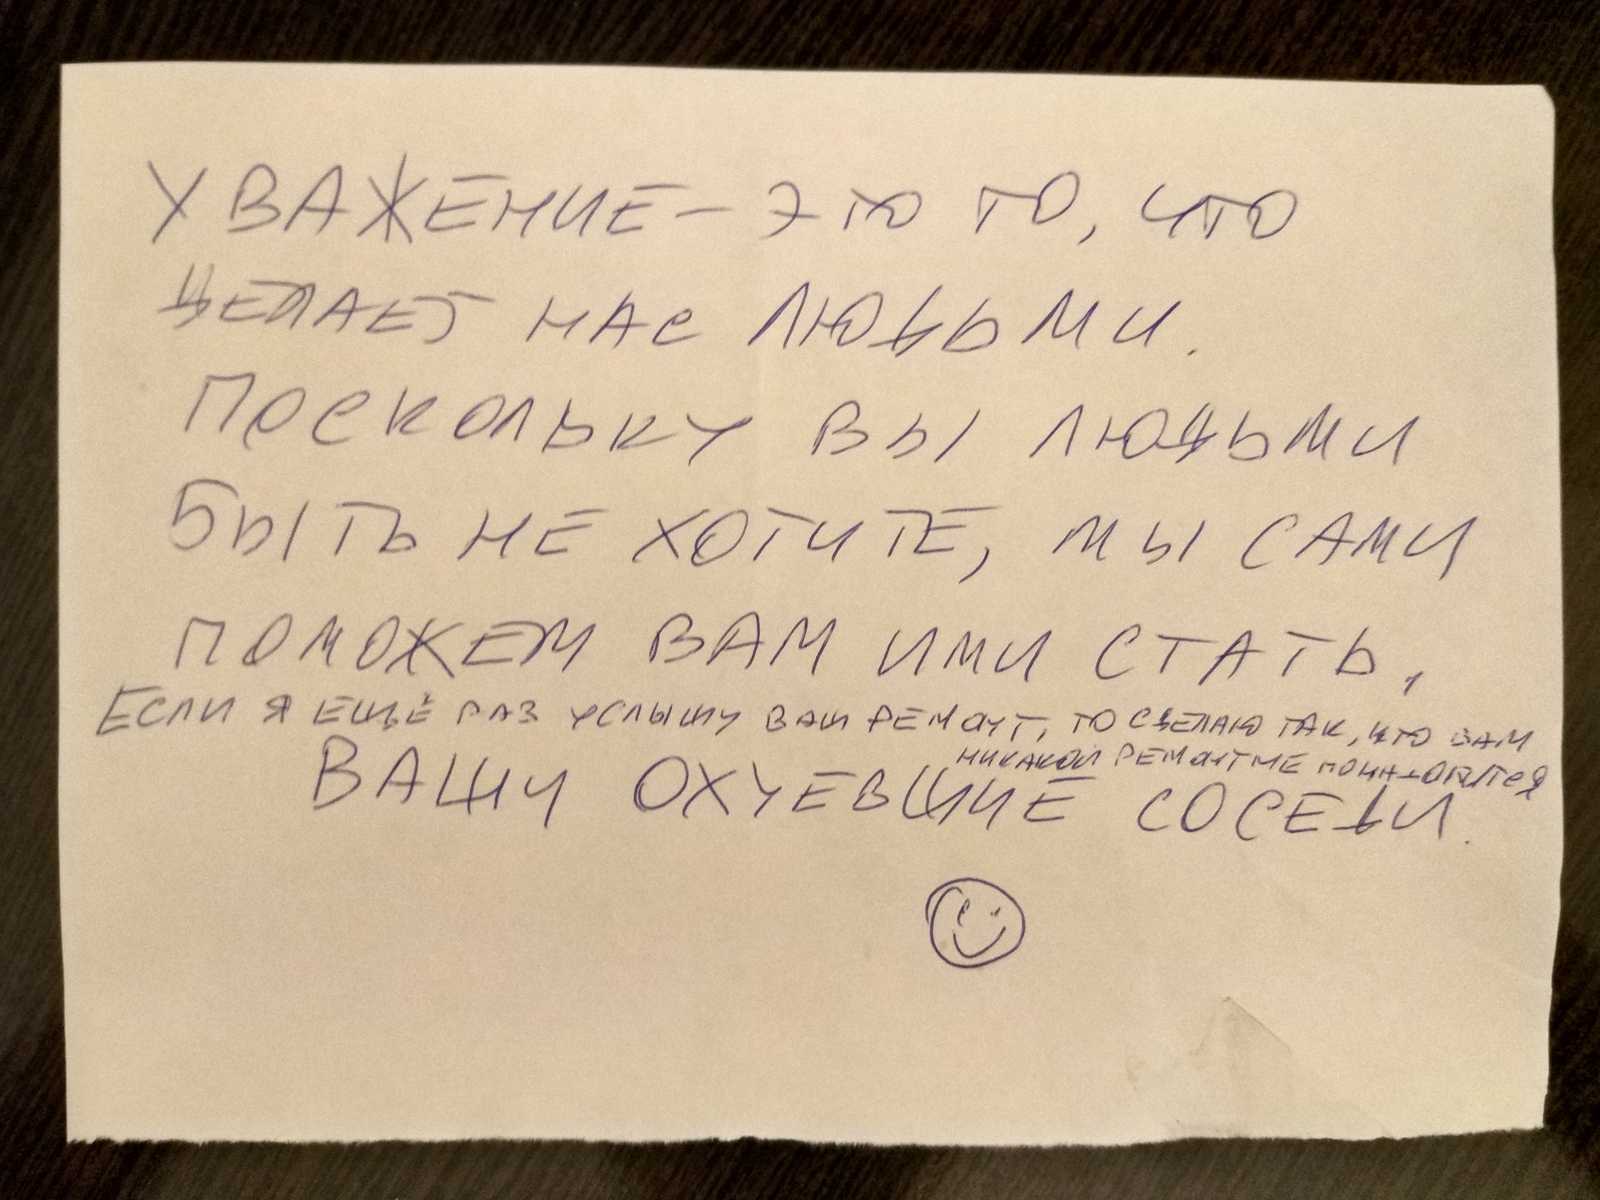 УВАЖЕНИЕ – ЭТО ТО, ЧТО
ДЕЛАЕТ НАС ЛЮДЬМИ.
ПОСКОЛЬКУ ВЫ ЛЮДЬМИ
БЫТЬ НЕ ХОТИТЕ, МЫ САМИ
ПОМОЖЕМ ВАМ ИМИ СТАТЬ,
ЕСЛИ Я ЕЩЁ РАЗ УСЛЫШУ ВАШ РЕМОНТ, ТО СДЕЛАЮ ТАК, ЧТО ВАМ
НИКАКОЙ РЕМОНТ НЕ
ВАШИ ОХУЕВШИЕ СОСЕДИ.